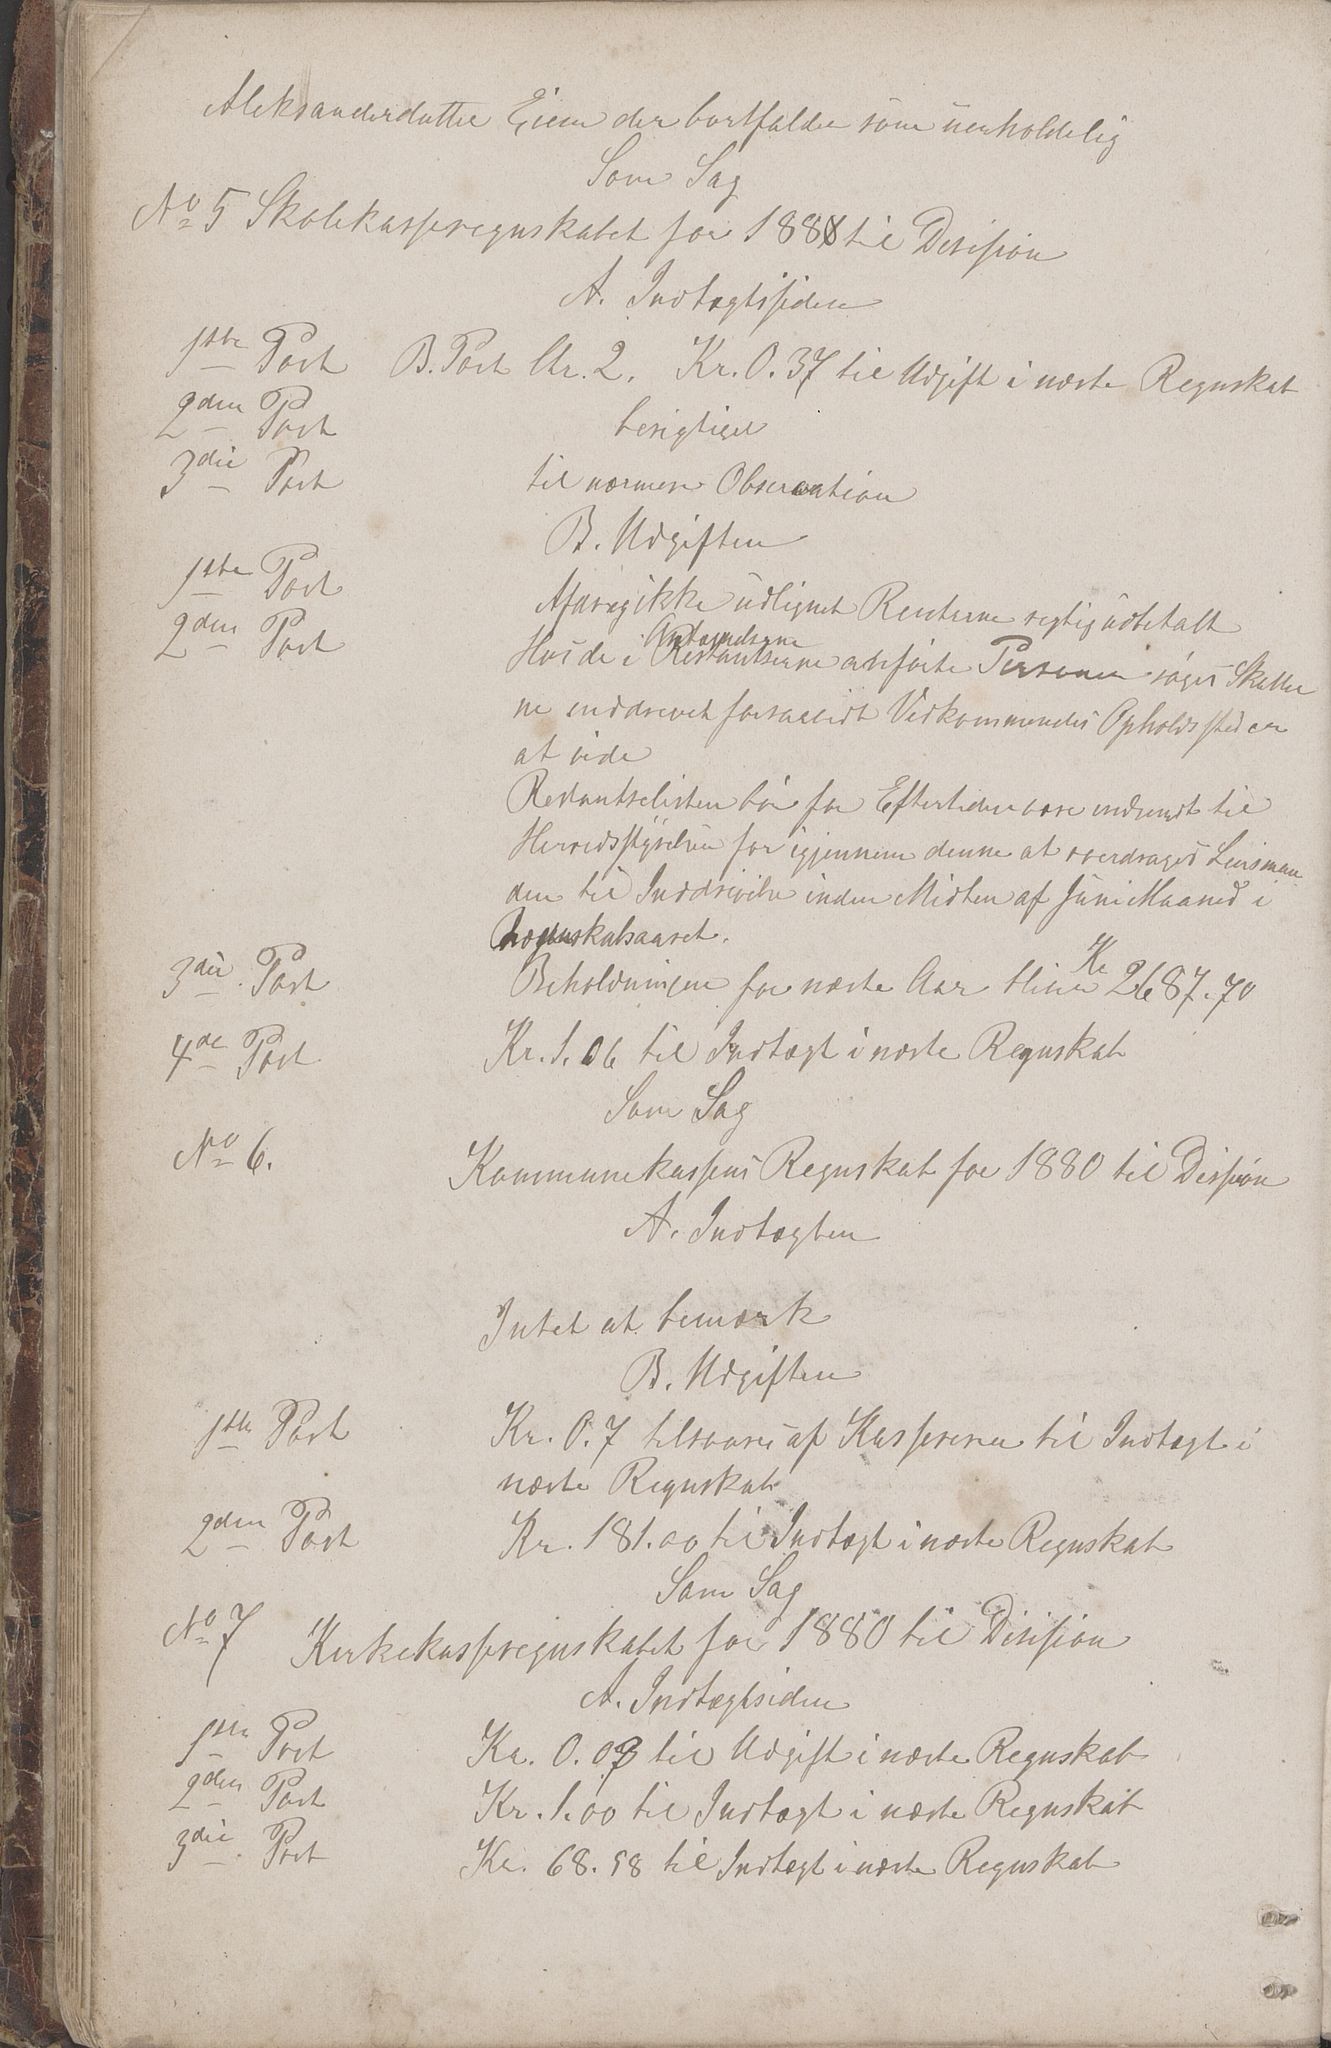 Aleksanderdatter Eiem der bortfalder som uerholdelig
Som Sag
No 5 Skolekasseregnskabet for 1880 til Desisjon
A. Indtægtssiden
1ste Post B. Post Nr. 2. Kr. 0.37 til Udgift i næste Regnskab
2den Post berigtiget
3die Post til nærmere Observation
B. Udgiften
1ste Post ikke udlignet Renterne rigtig udbetalt
2den Post Hos de i Antegnelserne anførte Personer søges Skatte
ne inddrevet forsaavidt Vedkommendes Opholdssted er
at vide
Restantselisten bør for Eftertiden være indsendt til
Herredsstyrelsen for igjennem denne at overdrages Lensman
den til Inddrivelse inden Midten af Juni Maaned i
Regnskabsaaret.
3die Post Beholdningen for næste Aar bliver Kr 2687.70
4de Post Kr. 1.06 til Indtægt i næste Regnskab
Som Sag
No 6. Kommunekassens Regnskab for 1880 til Desisjon
A. Indtægten
Intet at bemærk
B. Udgiften
1ste Post Kr. 0.7 tilsvares af Kassereren til Indtægt i
næste Regnskab
2den Post Kr. 181.00 til Indtægt i næste Regnskab
Som Sag
No 7 Kirkekasseregnskabet for 1880 til Disisjon
A. Indtægtsiden
1ste Post Kr. 0.03 til Udgift i næste Regnskab
2den Post Kr. 1.00 til Indtægt i næste Regnskab
3die Post Kr. 68.58 til Indtægt i næste Regnskab